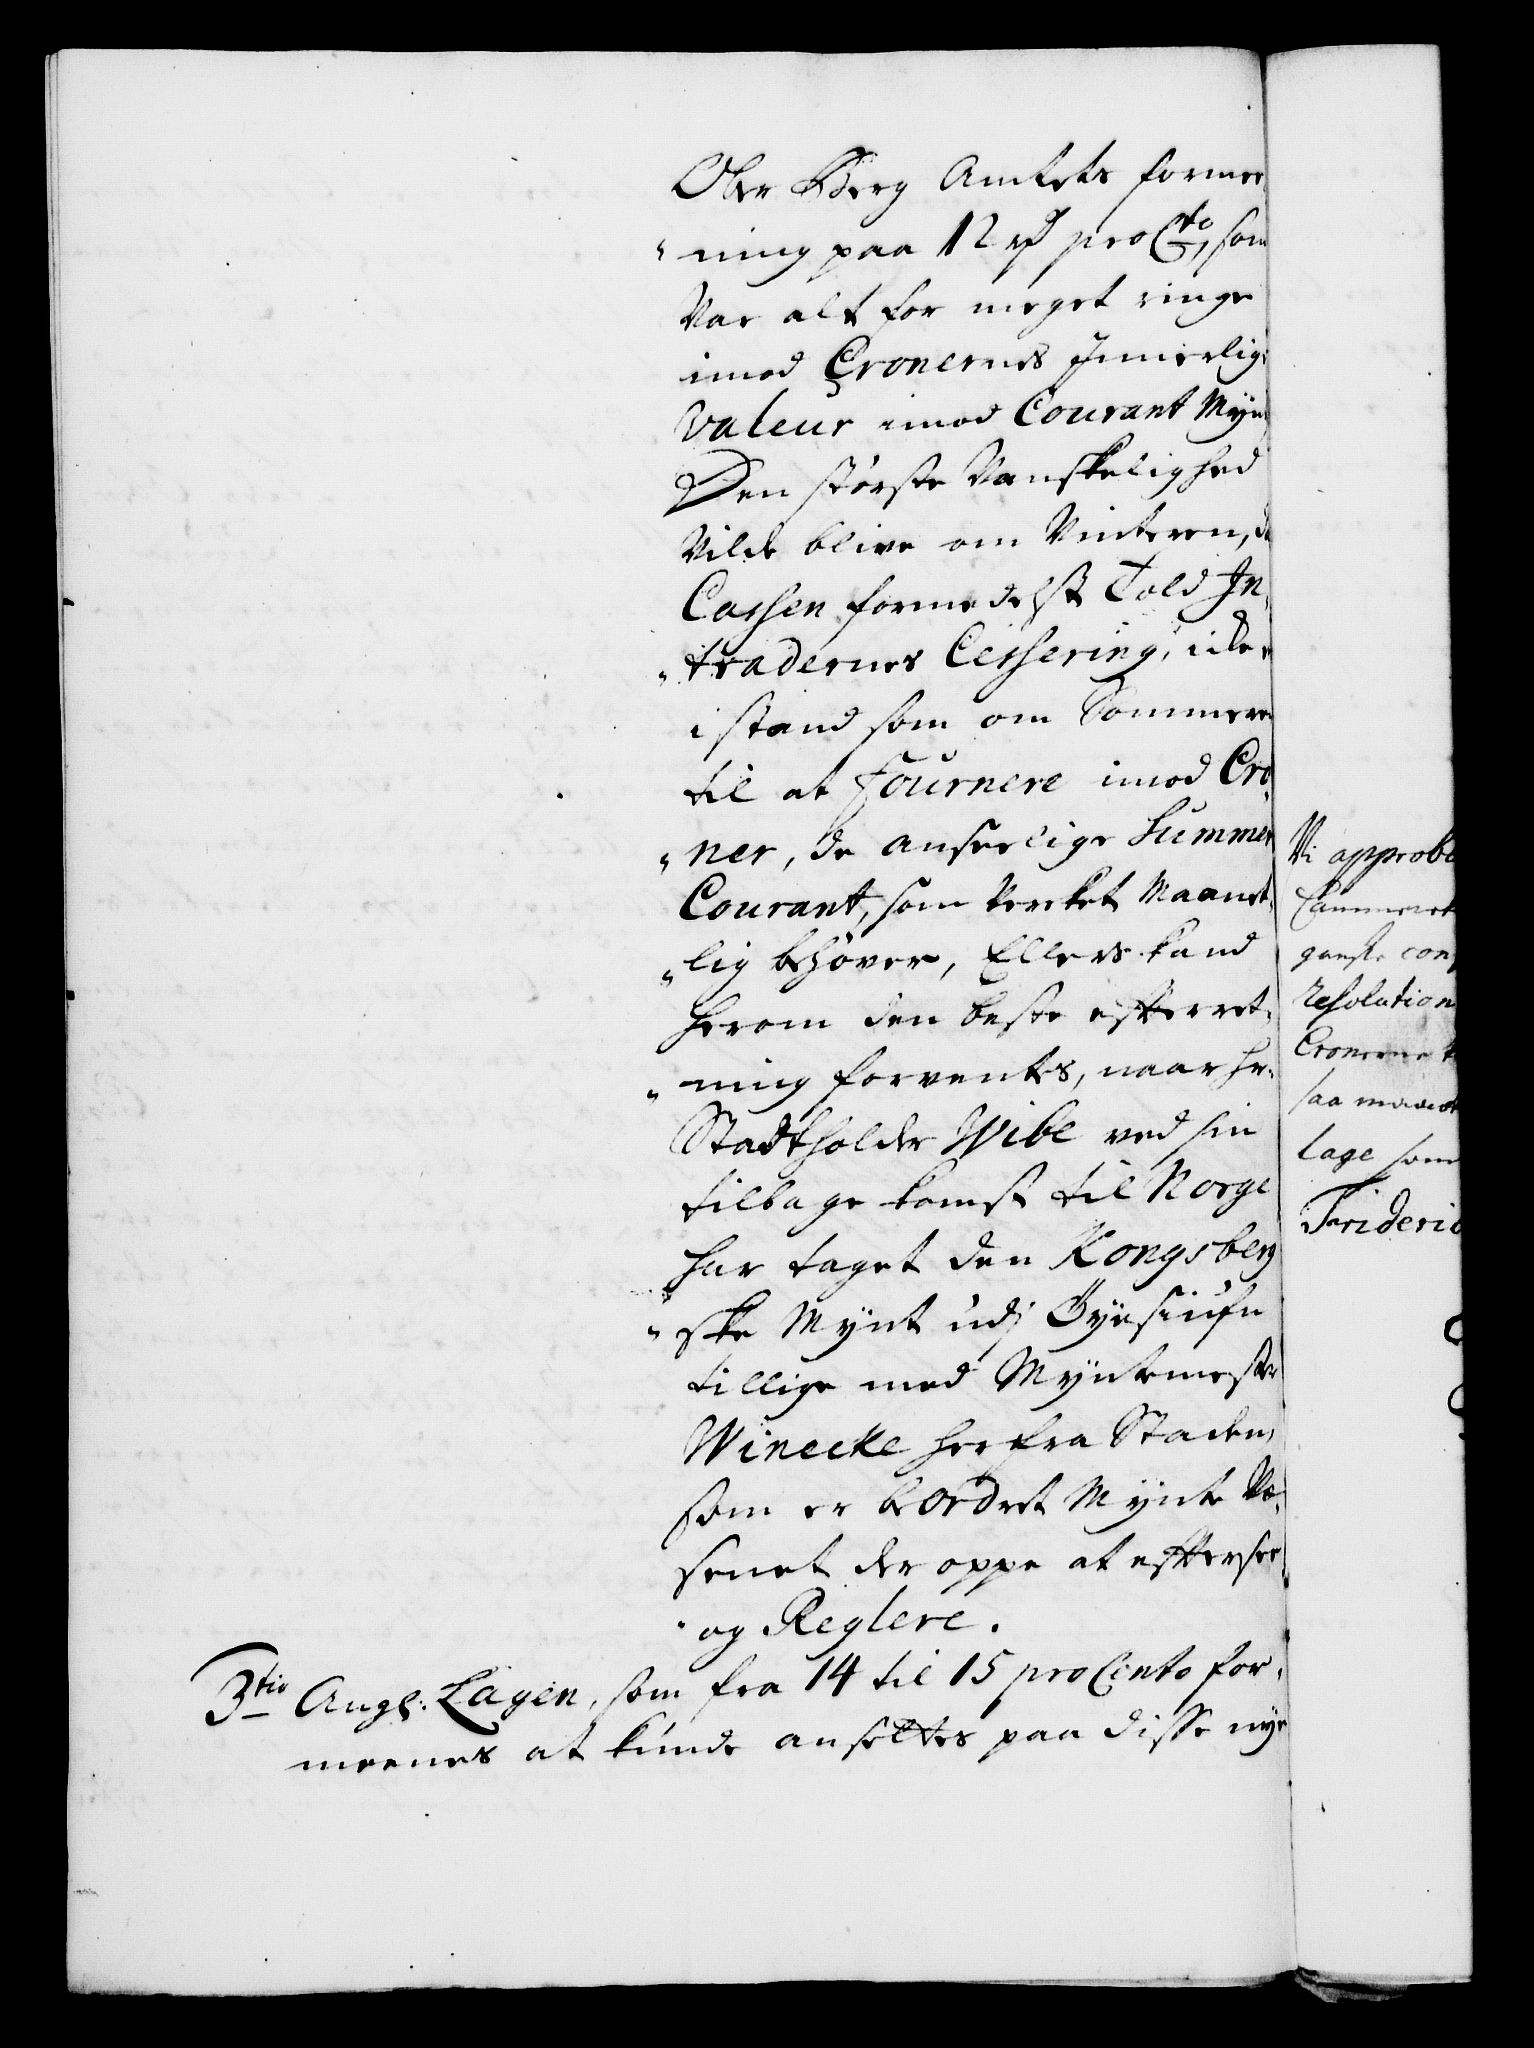 Ober Berg Amtets formee-
"ning paa 12 rd pro Cto, som
Var alt for meget ringe
imod Cronernes Innerlige
Valeur imod Courant Mynt
Den største Vanskelighed
Vilde blive om Vinteren, da
Cassen formedelst Told In-
"tradernes Cessering, icke er
i stand som om Sommeren
til at fournere imod Cro-
"ner, de anseelige Summer
Courant, som Verket Maanet-
"lig behøver, Ellers kand
herom den beste efterret-
"ning forventes, naar Hr.
Stadtholder Wibe ved sin
tilbage komst til Norge
har taget den Kongsberg
"ske Mynt udj Öyesiufn
tillige med Myntemester
Winecke her fra Staden,
som er beordret Mynte Væ-
senet der oppe at efftersee
"og Reglere.
3tio Ang: Lagen, som fra 14 til 15 pro Cento for-
meenes at kunde ansettes paa disse nye
Vi approbe
Cammeret
gandske con
resolution
Cronerne
saa
lage som
Frideric